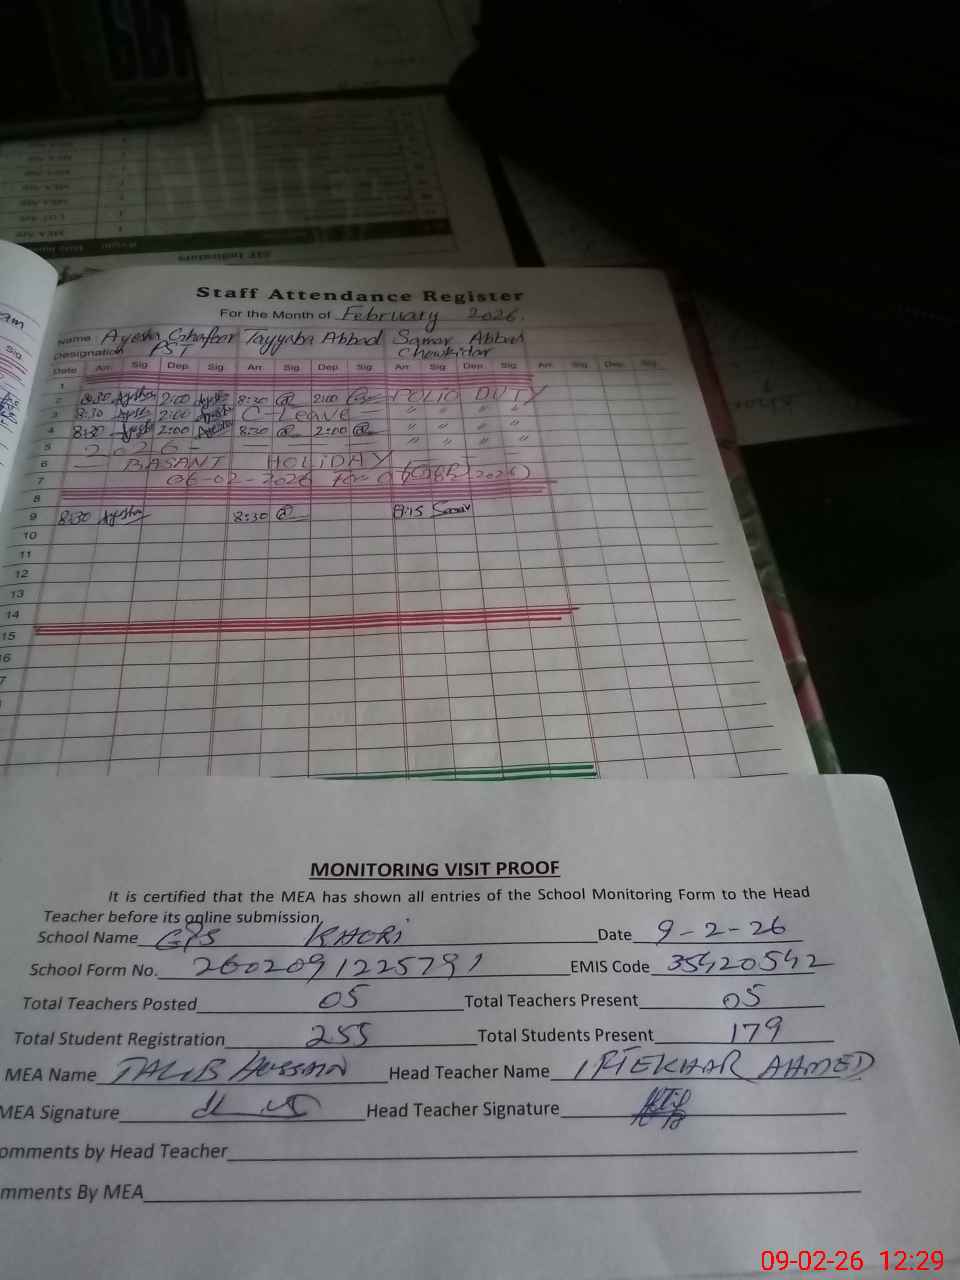 Staff Attendance Register
For the Month of February 2026.
Name Ayesha Ghafoor Tayyaba Abbad Samar Abbad
Designation PST Chowkidar
Date Arr. Sig Dep. Sig. Arr. Sig. Dep. Sig. Arr. Sig. Dep. Sig. Arr. Sig. Dep. Sig.
1
2 8:30 Aysha 2:00 Aysha 8:30 2:00 POLIO DUTY
3 8:30 Aysha 2:00 Aysha C-Leave — " " " "
4 8:30 Aysha 2:00 Aysha 8:30 2:00 " " " "
5 2026 - " " " "
6 — BASANT HOLIDAY
7 06-02-2026 2026)
8
9 8:30 Aysha 8:30 8:15 Samar
10
11
12
13
14
15
16
7
MONITORING VISIT PROOF
It is certified that the MEA has shown all entries of the School Monitoring Form to the Head
Teacher before its online submission.
School Name GPS KHORI Date 9-2-26
School Form No. 2602091225791 EMIS Code 35420542
Total Teachers Posted 05 Total Teachers Present 05
Total Student Registration 255 Total Students Present 179
MEA Name TALIB HUSSAIN Head Teacher Name IFTEKHAR AHMED
MEA Signature Head Teacher Signature
omments by Head Teacher
mments By MEA
09-02-26 12:29